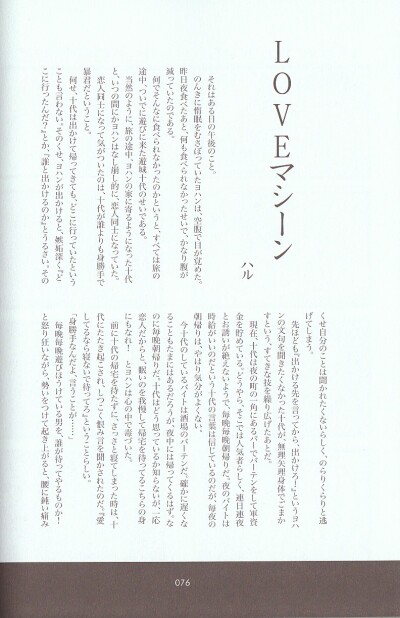 LOVEマシーン
ハル
それはある日の午後のこと。
のんきに惰眠をむさぼっていたヨハンは、空腹で目が覚めた。
昨日夜食べたあと、何も食べられなかったせいで、かなり腹が
減っていたのである。
何でそんなに食べられなかったのかというと、すべては旅の
途中、ついでに遊びに来た遊城十代のせいである。
当然のように、旅の途中、ヨハンの家に寄るようになった十代
と、いつの間にかヨハンはなし崩し的に、恋人同士になっていた。
恋人同士になって気がついたのは、十代が誰よりも身勝手で
暴君だということ。
何せ、十代は出かけて帰ってきても、どこに行っていたという
ことも言わない。そのくせ、ヨハンが出かけると、嫉妬深く『ど
こに行ったんだ？』とか、『誰と出かけるのか』とうるさい。その
くせ自分のことは聞かれたくないらしく、のらりくらりと逃
げてしまう。
先ほども、『出かける先を言ってから、出かけろ！』というヨハ
ンの文句を聞きたくなかった十代が、無理矢理身体でごまか
すという、すてきな技を繰り広げたあとだ。
現在、十代は夜の町の一角にあるバーでバーテンをして軍資
金を貯めている。どうやら、そこでは人気者らしく、連日連夜
とお誘いが絶えないようで、毎晩毎晩朝帰りだ。夜のバイトは
時給がいいのだという十代の言葉は信じているのだが、毎夜の
朝帰りは、やはり気分がよくない。
今十代のしているバイトは酒場のバーテンだ。確かに遅くな
ることもたまにはあるだろうが、夜中には帰ってくるはず。な
のに毎晩朝帰りだ。十代はどう思っているか知らないが、一応
恋人だからと、眠いのを我慢して帰宅を待ってるこちらの身
にもなれ！ とヨハンは心の中で毒づいた。
前に十代の帰宅を待たずに、さっさと寝てしまった時は、十
代にたたき起こされ、しつこく恨み言を聞かされたのだ。『愛
してるなら寝ないで待ってろ』ということらしい。
「身勝手なんだよ、言うことが……」
毎晩毎晩遊びほうけている男を、誰が待ってやるものか！
と怒り狂いながら、勢いをつけて起き上がると、腰に鈍い痛み
076